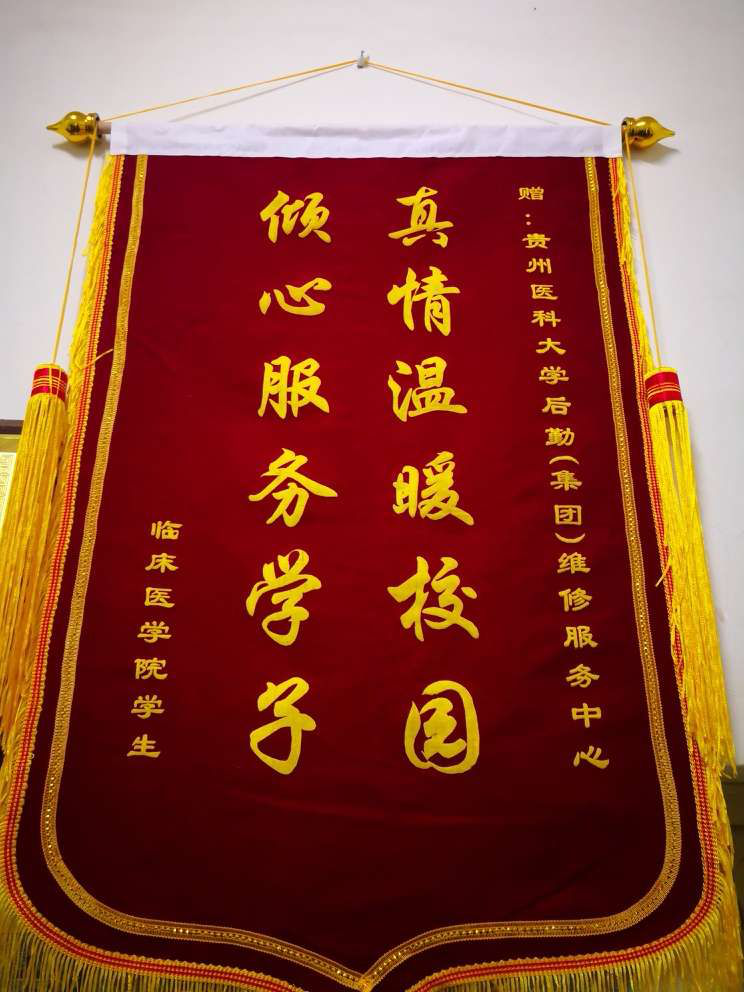 赠:贵州医科大学后勤(集团)维修服务中心
真情温暖校园
倾心服务学子
临床医学院学生